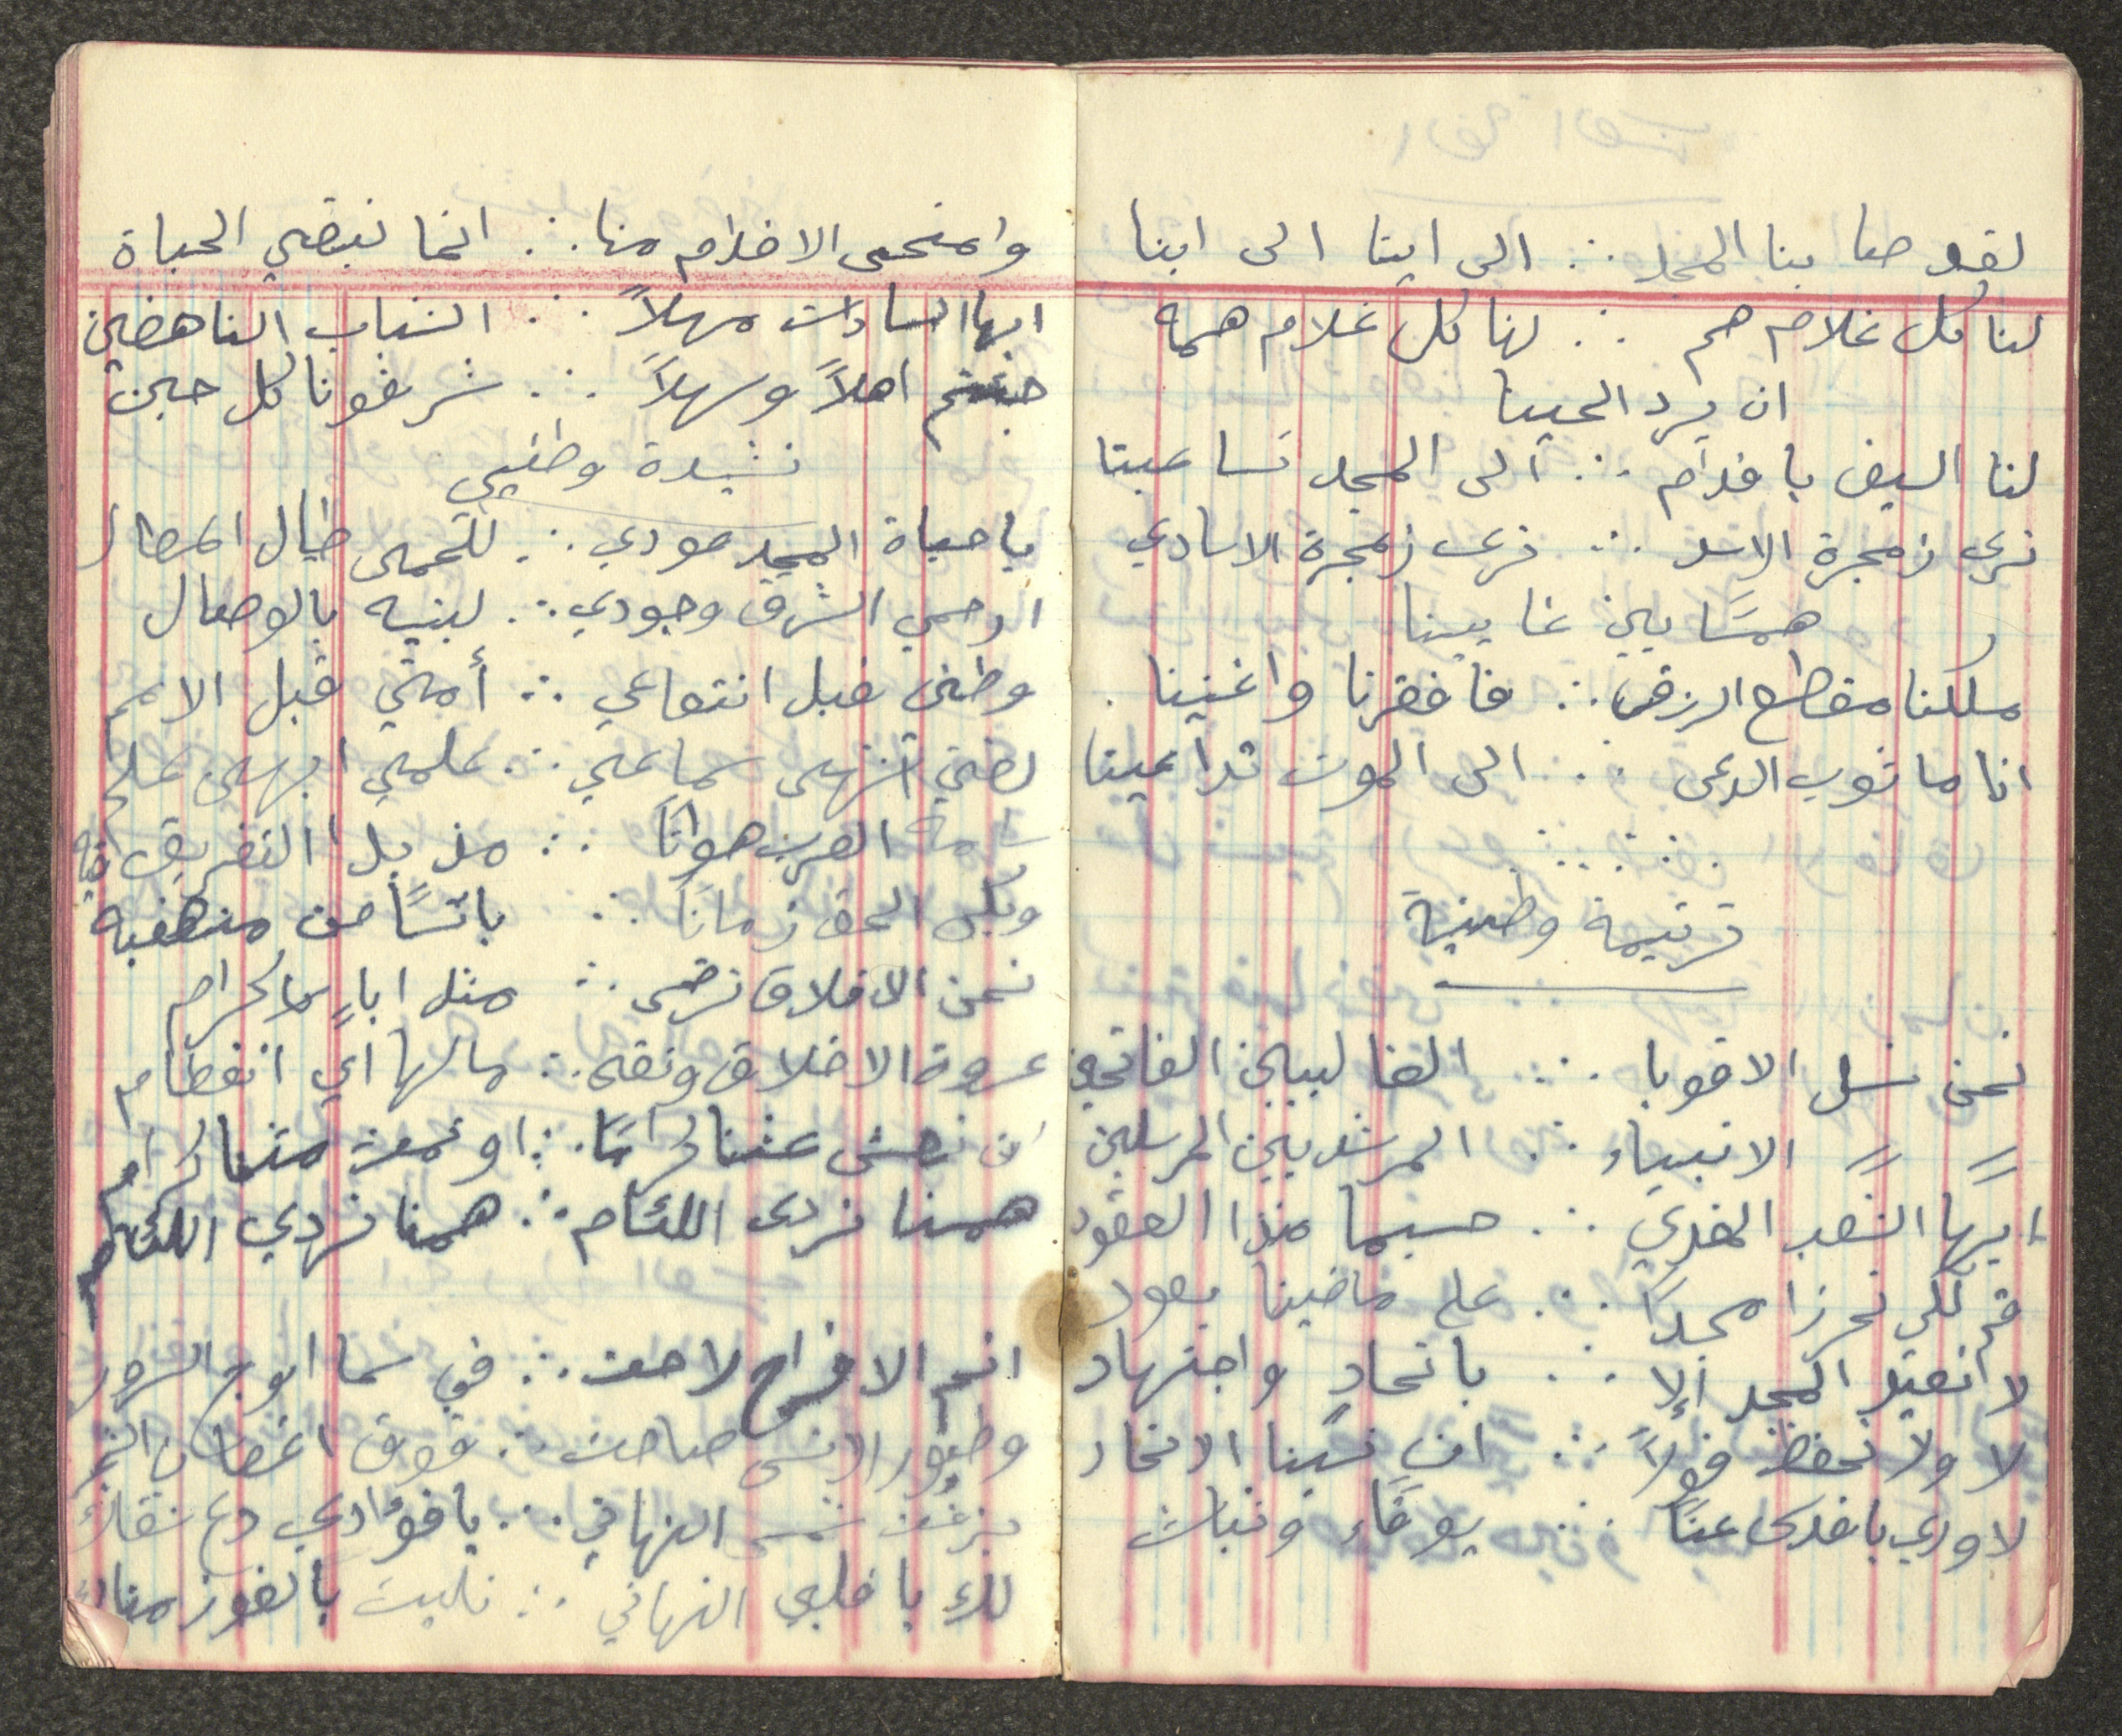 لقد صا بنا المجد ∴ الى اينا الى اينا
لنا كل غلام هم ∴ لنا كل غلام همه
ان يرد الحينا
لنا السيف يا فدام ∴ الى المجد تساعينا
نرى زمجرة الاسد ∴ نرى زمجرة الاسادي
همسًا بين غابينا
ملكنا مقطع الرزق ∴ فافقرنا واغنينا
انا ما نوب الدعى ∴ الى الموت تداعينا
ترنيمة وطنية
نحن نسل الاقويا ∴ الغالبين الفاتحين
〃 〃 الانبياء ∴ المرشدين المرسلين
ايها الشعب المفدي ∴ حسبما هذا العقود
قم لكي نحرزا مجدًا ∴ على ماضينا يعود
لا نعيد المجد إلا ∴ باتحادٍ واجتهاد
لا ولا نحفظ قولاً ∴ ان نسينا الاتحاد
لا وربي يا فدى عنا ∴ بوفاء وثبات
وامنحى الاقدام منا ∴ انما نبتغي الحياة
ايها السادات مهلاً ∴ الشباب الناهضين
جئتم اهلاً وسهلاً ∴ شرفونا كل حين
نشيدة وطنيي
يا حياة المجد عودي ∴ للحمى طال المطال
ارحمي الشرق وجودي ∴ لبنيه بالوصال
وطني قبل انتفاعي ∴ أمتي قبل الامم
لغتي اشهى سماعي ∴ علمي ابهى علم
سامة العرب هوانًا ∴ مذ بدا التفريق فيه
وبكى الحق زمانًا ∴ يائسًا من منصفيه
نحن الاخلاق نرضى ∴ مثل اباءٍ كرام
عروة الاخلاق وثقى ∴ مالها اي انفصام
ان نعش عشنا كرامًا ∴ او نمت متنا كرام
همنا نردي اللئام ∴ همنا نردي اللئام
انجم الافراح لاحت ∴ في سما اوج السرور
وطيور الانس صاحت ∴ فوق اغصان
بزغت شمس التهاني ∴ يا فؤادي دع شقاك
لك يا قلبي التهاني ∴ نلت بالفوز مناك